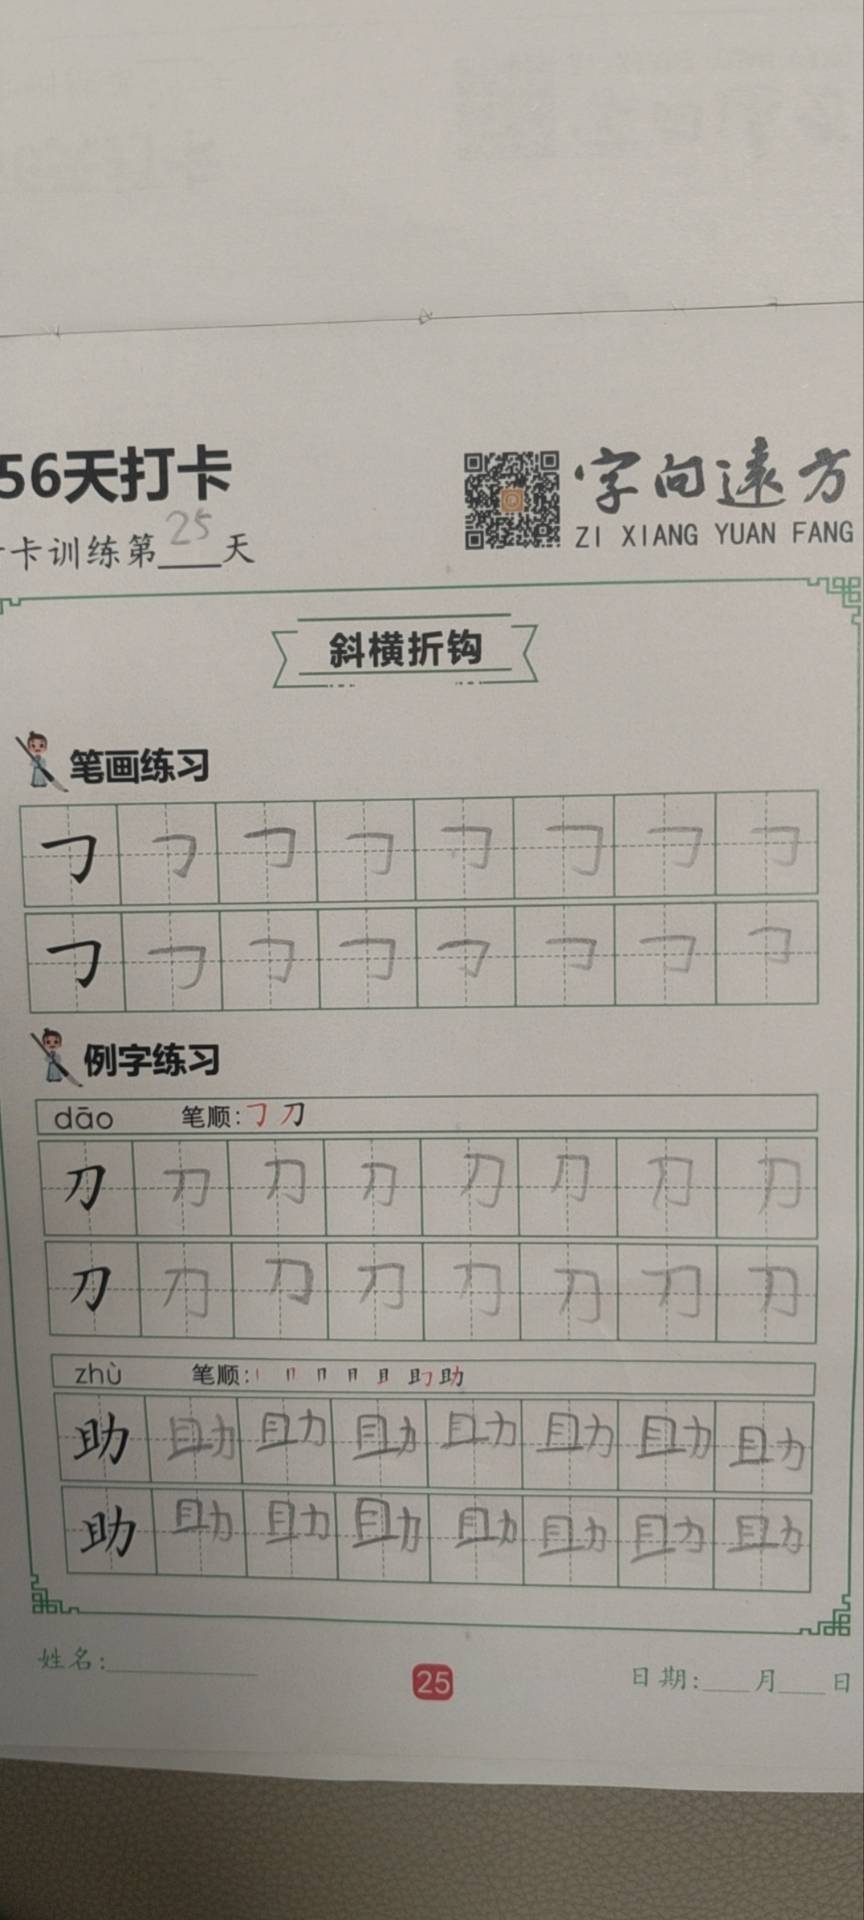 56天打卡
字向远方
卡训练第25天
ZI XIANG YUAN FANG
斜横折钩
笔画练习
例字练习
dāo 笔顺: 𠃌 刀
刀 刀 刀 刀 刀 刀 刀 刀
刀 刀 刀 刀 刀 刀 刀 刀
zhù 笔顺: 助
助 助 助 助 助 助 助 助
助 助 助 助 助 助 助 助
姓名:
25
日期: 月 日